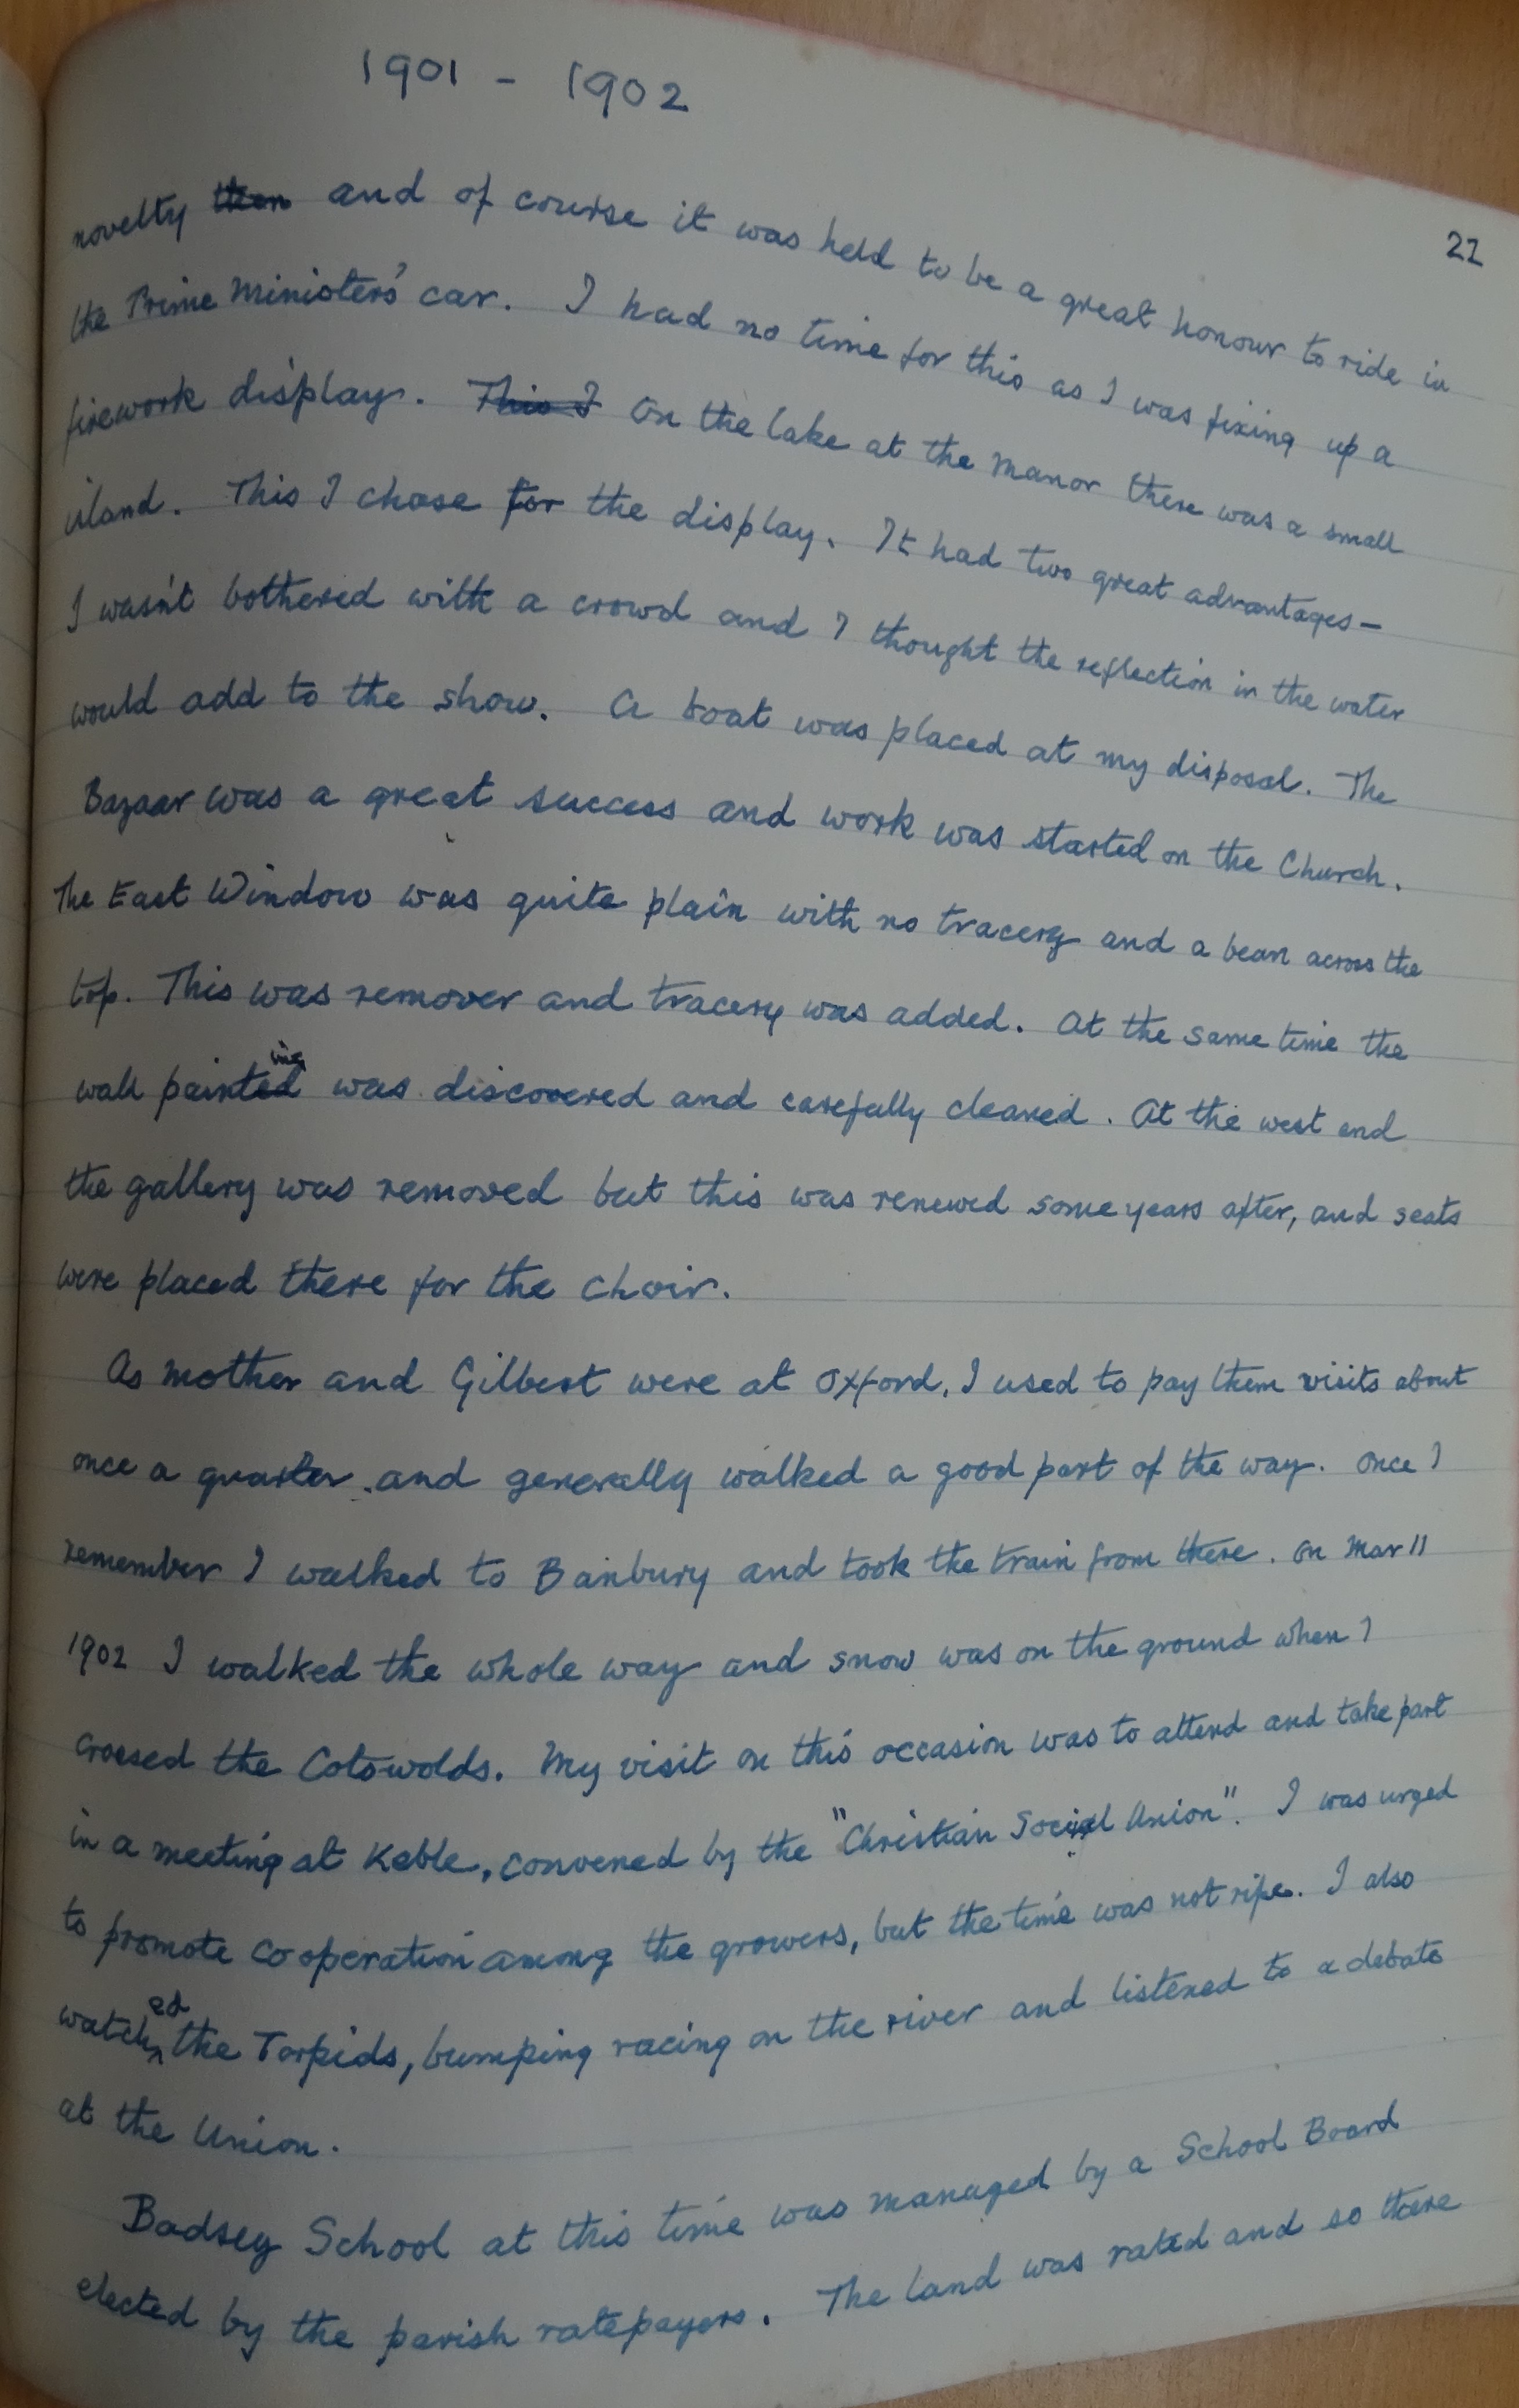 1901 - 1902
22
novelty then and of course it was held to be a great honour to ride in
the Prime Ministers' car. I had no time for this as I was fixing up a
firework display. This I On the lake at the Manor there was a small
island. This I chose for the display. It had two great advantages—
I wasn't bothered with a crowd and I thought the reflection in the water
would add to the show. A boat was placed at my disposal. The
Bazaar was a great success and work was started on the Church.
The East Window was quite plain with no tracery and a beam across the
top. This was remover and tracery was added. At the same time the
wall painting was discovered and carefully cleaned. At the west end
the gallery was removed but this was renewed some years after, and seats
were placed there for the choir.
As mother and Gilbert were at Oxford, I used to pay them visits about
once a quarter and generally walked a good part of the way. Once I
remember I walked to Banbury and took the train from there. On Mar 11
1902 I walked the whole way and snow was on the ground when I
crossed the Cotswolds. My visit on this occasion was to attend and take part
in a meeting at Keble, convened by the "Christian Social Union". I was urged
to promote cooperation among the growers, but the time was not ripe. I also
watched the Torpids, bumping racing on the river and listened to a debate
at the Union.
Badsey School at this time was managed by a School Board
elected by the parish ratepayers. The land was rated and so there